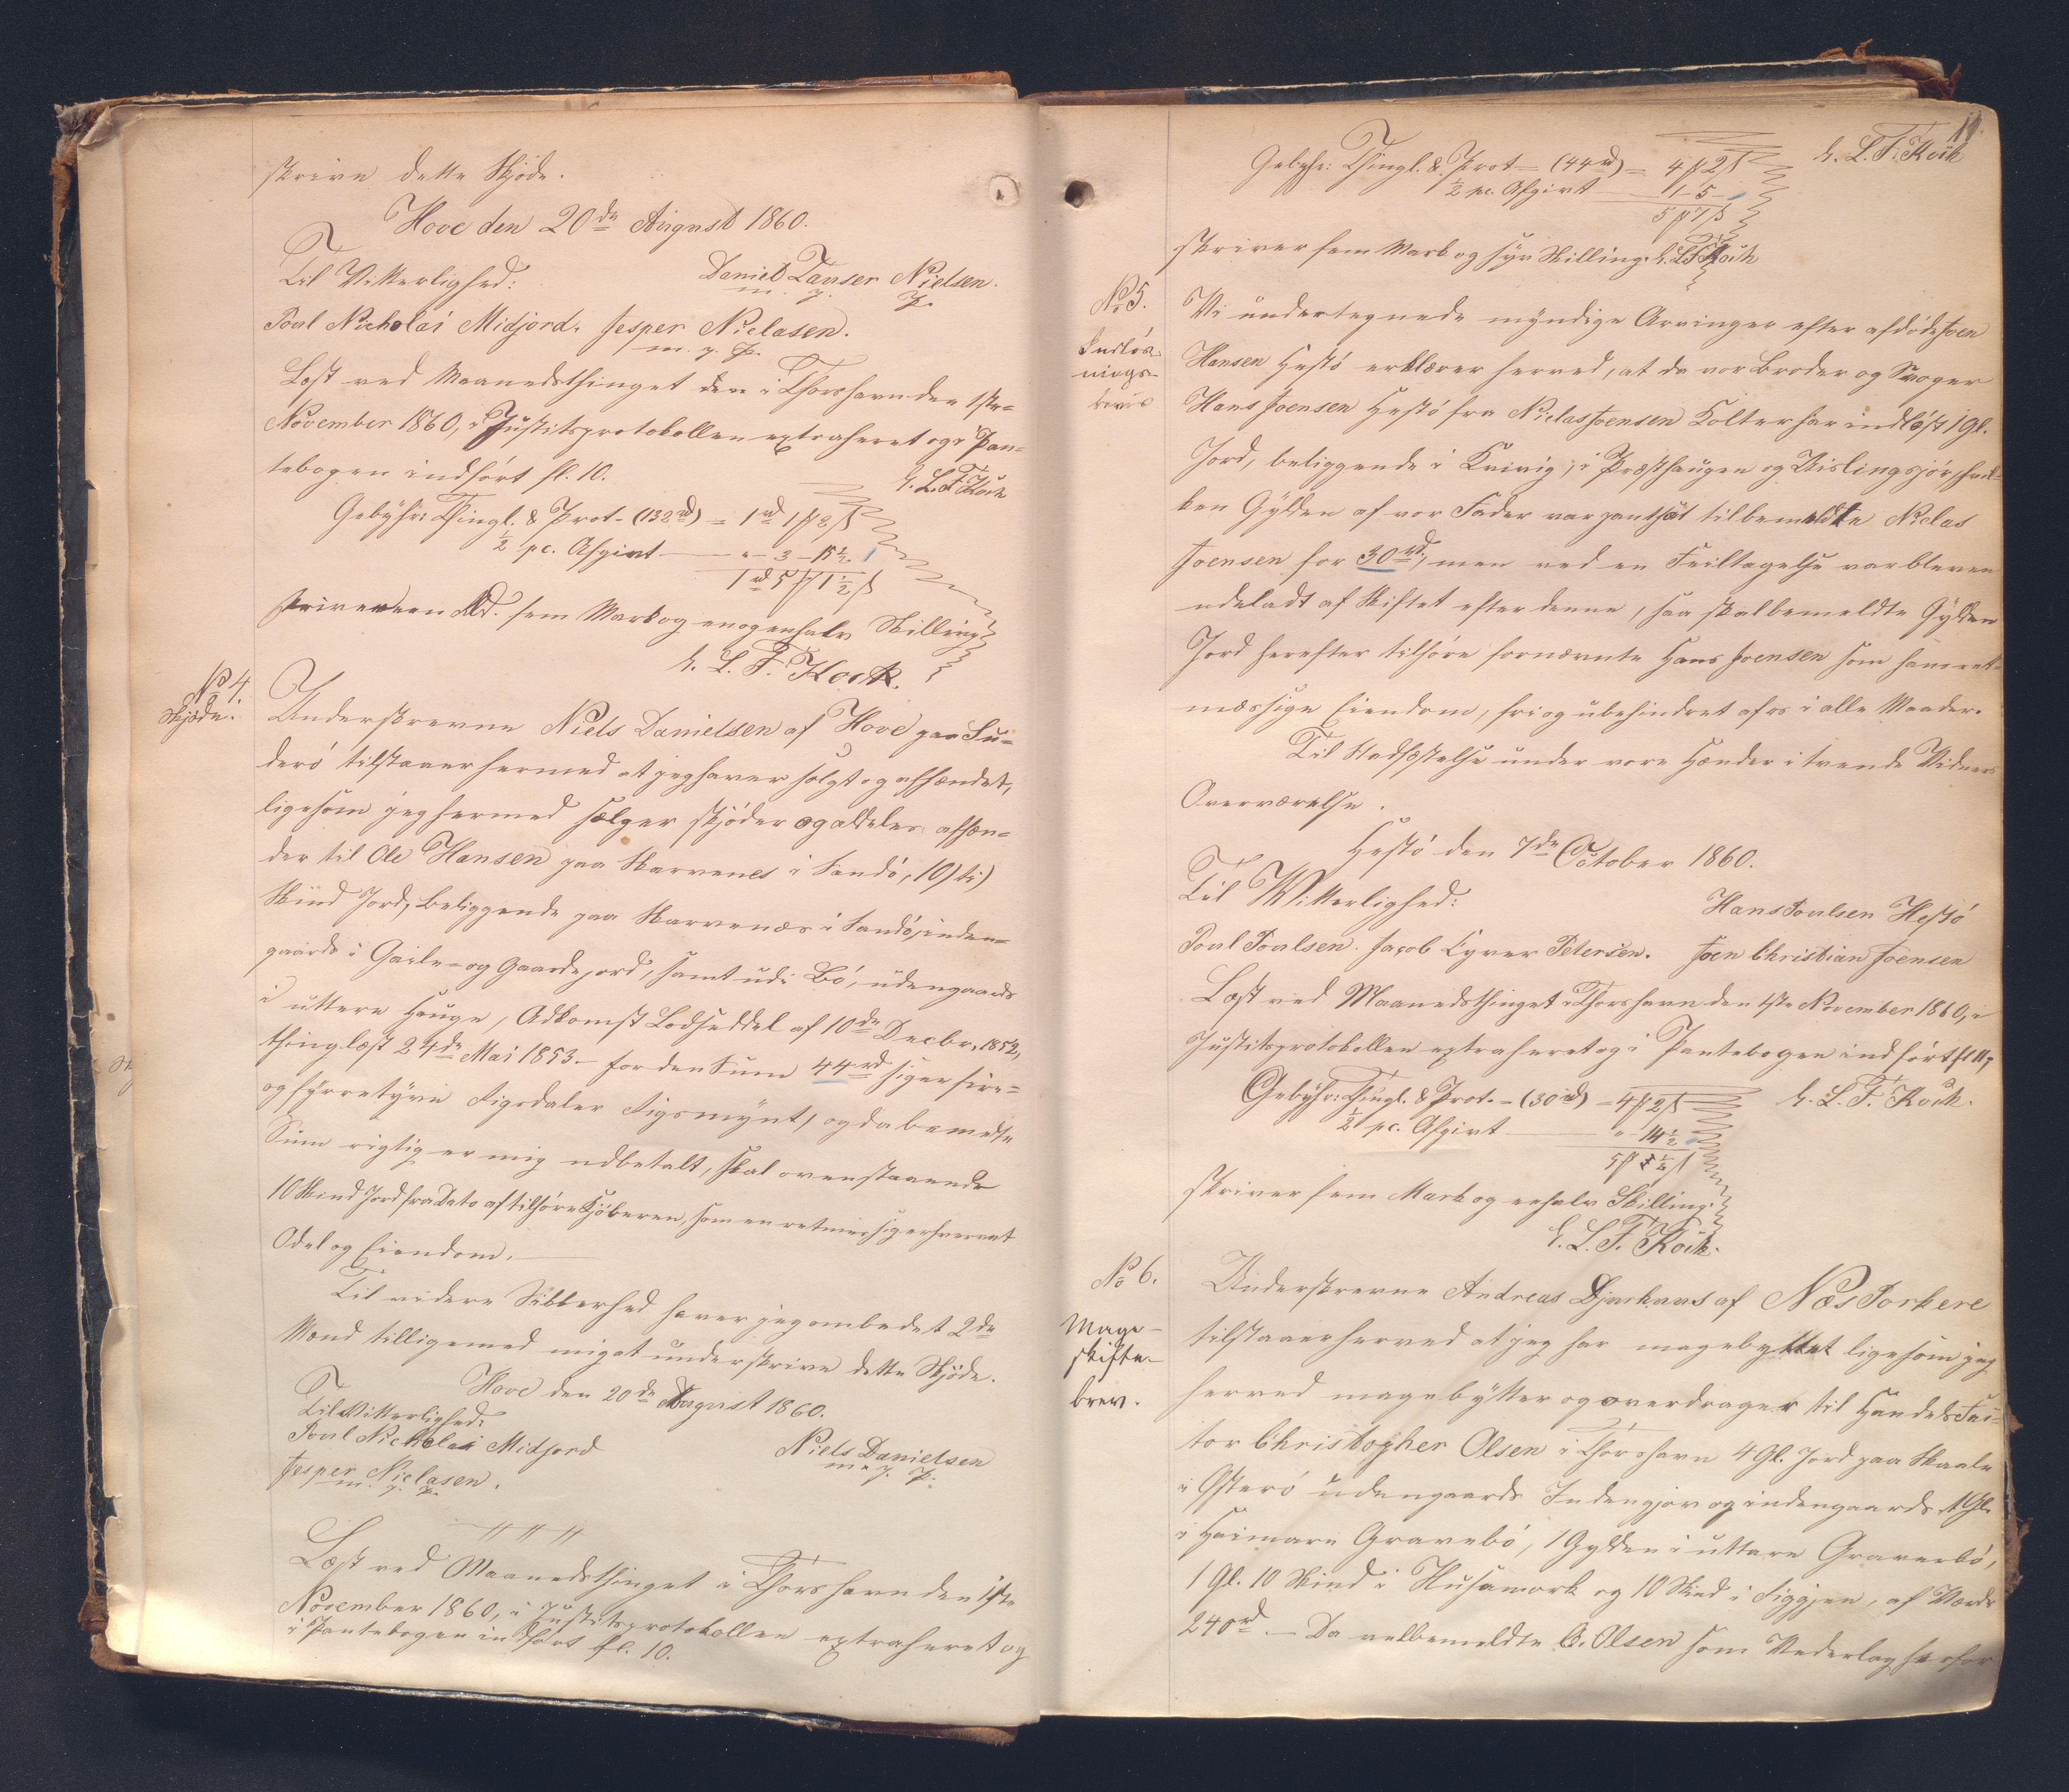 skrive dette Skjøde.
Hove den 20de August 1860.
Til Vitterlighed:
Daniel Tauser Nielsen.
m. p. p.
Poul Nicholai Midjord. Jesper Nielasen.
m. p. p.
Læst ved Maanedsthinget den i Thorshavn den 1ste
November 1860, i Justitsprotokollen extraheret og i Pan=
tebogen indført fl. 10.
E. L. F. Koch
Gebyhr: Thingl. & Prot. (132 rd) = 1 rd 1 ₻ 2 ß
½ pc. Afgivt — " — 3 — 15½
1 rd 5 ₻ 1½ ß
skriver een Rd. fem Mark og enogenhalv Skilling
E. L. F. Koch.
No 4.
Skjøde.
Underskrevne Niels Danielsen af Hove paa Su=
derö tilstaaer hermed at jeg haver solgt og afhændet,
ligesom jeg hermed sælger skjøder og aldeles afhæn=
der til Ole Hansen paa Skarvenes i Sandö, 10) ti)
Skind Jord, beliggende paa Skarvenæs i Sandö, inden=
gaards i Geile- og Gaardejord, samt udi Bö, udengaards
i uttere Hauge, Adkomst Lodseddel af 10de Decbr. 1852,
thinglæst 24de Mai 1853 — for den Sum 44 rd siger fire=
og fyrretyve Rigsdaler Rigsmynt, og da bemeldte
Sum rigtig er mig udbetalt, skal ovenstaaende
10 Skind Jord fra Dato af tilhøre Kjøberen, som en retmæssig erhvervet
Odel og Eiendom. —
Til videre Sikkerhed haver jeg ombedet 2de
Mænd tilligemed mig at underskrive dette Skjøde.
Hove den 20de August 1860.
Til Vitterlighed:
Poul Nicholai Midjord
Niels Danielsen
m. p. p.
Jesper Nielasen.
m. p. p.
Læst ved Maanedsthinget i Thorshavn den 1ste
November 1860, i Justitsprotokollen extraheret og
i Pantebogen indført fl. 10.
11.
Gebyhr: Thingl. & Prot = (44 rd) = 4 ₻ 2 ß
E. L. F. Koch
½ pc. Afgivt — 1 - 5
5 ₻ 7 ß
skriver fem Mark og syv Skilling. E. L. F. Koch
No 5.
Indløs=
nings=
bevis
Vi undertegnede myndige Arvinger efter afdøde Joen
Hansen Hestö erklærer herved, at da vor Broder og Svoger
Hans Joensen Hestö fra Niclas Joensen Kolter har indløst 1 Gl.
Jord, beliggende i Kvivig, i Præsthaugen og Uislingsjør, hvil=
ken Gylden af vor Fader var pantsat til bemeldte Niclas
Joensen for 30 rd, men ved en Feiltagelse var bleven
udeladt af Skiftet efter denne, saa skal bemeldte Gylden
Jord herefter tilhøre fornævnte Hans Joensen som hans ret=
mæssige Eiendom, fri og ubehindret af os i alle Maader.
Til Stadfæstelse under vore Hænder i tvende Vidners
Overværelse.
Hestö den 7de October 1860.
Til Vitterlighed:
Hans Poulsen Hestö
Poul Poulsen. Jacob Ejver Petersen. Joen Christian Joensen
Læst ved Maanedsthinget i Thorshavn den 1ste November 1860, i
Justitsprotokollen extraheret og i Pantebogen indført fl 11,
Gebyhr: Thingl. & Prot. = (30 rd) = 4 ₻ 2 ß
E. L. F. Koch.
½ pc. Afgivt — " - 14½
5 ₻ ½ ß
skriver fem Mark og enhalv Skilling.
E. L. F. Koch.
No 6.
Mage=
skifte=
brev.
Underskrevne Andreas Djurhuus af Næs Porkere
tilstaaer herved at jeg har magebyttet ligesom jeg
herved magebytter og overdrager til Handels Fac=
tor Christopher Olsen i Thorshavn 4 Gl. Jord paa Skaale
i Østerö udengaards Indengjov og indengaards 1 Gl.
i Heimare Gravebö, 1 Gylden i uttare Gravebö,
1 Gl. 10 Skind i Husamork og 10 Skind i Riggjen, af Værdi
240 rd. — Da velbemeldte C. Olsen som Vederlag herfor